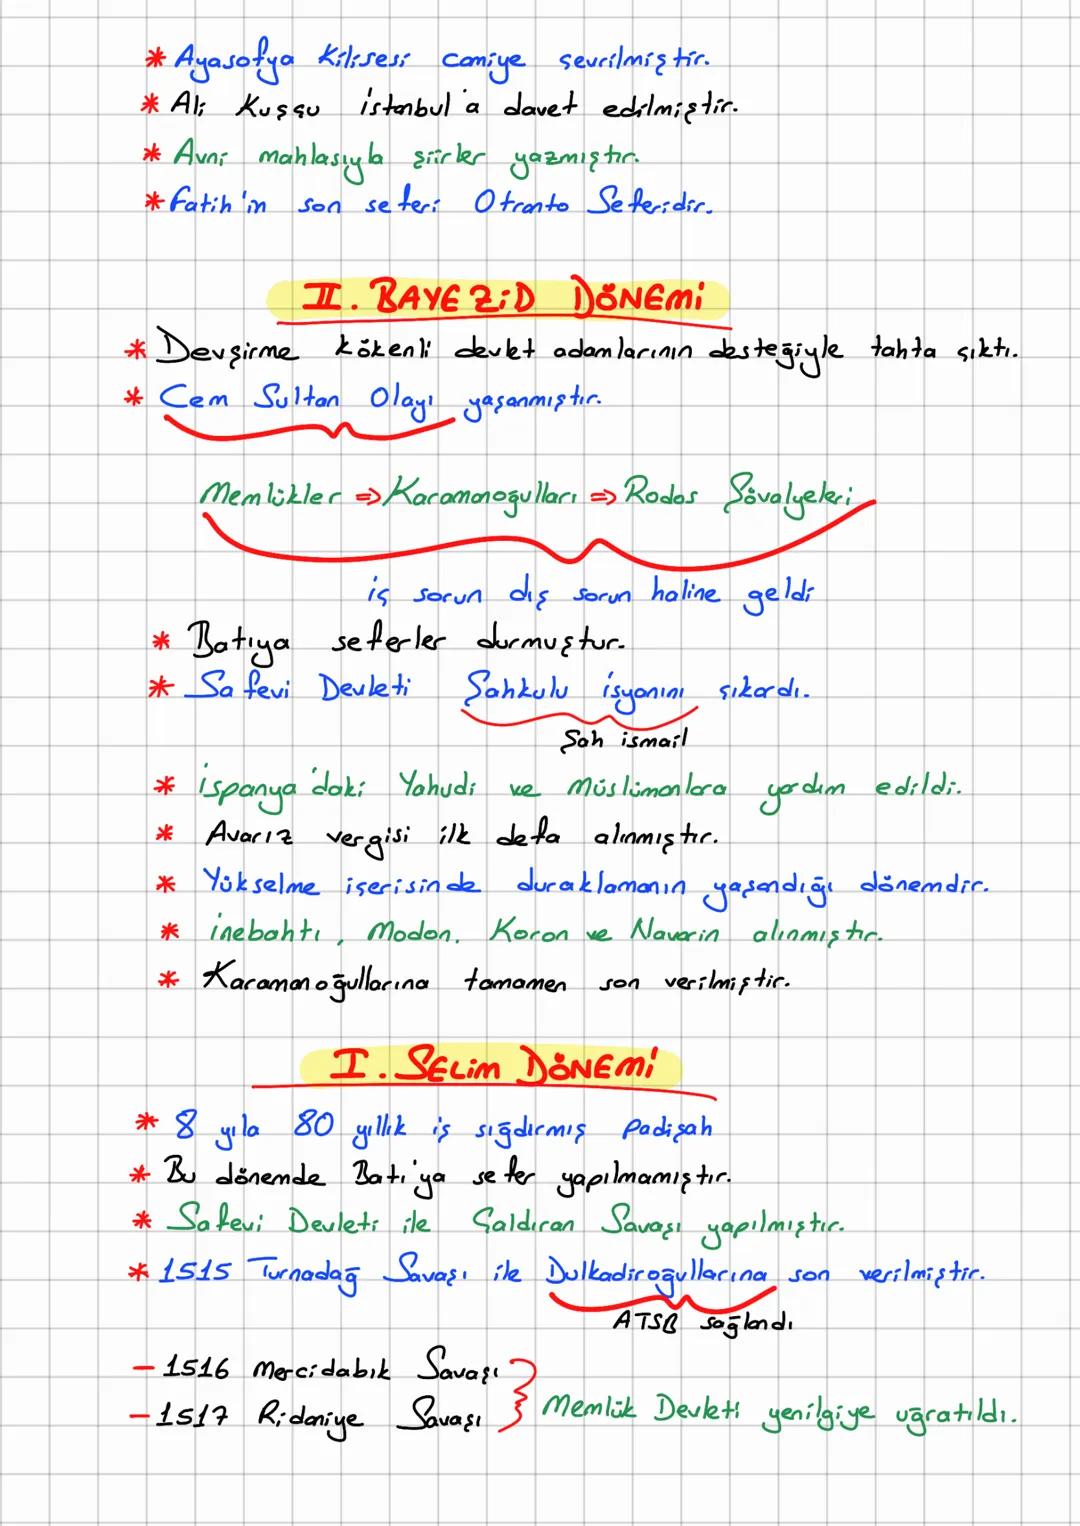 * Ayasofya Kilisesi camiye çevrilmiştir.
* Ali Kuşçu İstanbul'a davet edilmiştir.
* Avni mahlasıyla şiirler yazmıştır.
* Fatih'in son seferi Otranto Seferidir.
II. BAYEZİD DÖNEMİ
* Devşirme kökenli devlet adamlarının desteğiyle tahta çıktı.
* Cem Sultan Olayı yaşanmıştır.
Memlükler => Karamanoğulları => Rodos Şövalyeleri
iç sorun dış sorun haline geldi
* Batıya seferler durmuştur.
* Safevi Devleti Şahkulu isyanını çıkardı.
Şah ismail
* İspanya'daki Yahudi ve Müslümanlara yardım edildi.
* Avarız vergisi ilk defa alınmıştır.
* Yükselme içerisinde duraklamanın yaşandığı dönemdir.
* İnebahtı, Modon, Koron ve Navarin alınmıştır.
* Karamanoğullarına tamamen son verilmiştir.
I. SELİM DÖNEMİ
* 8 yıla 80 yıllık iş sığdırmış Padişah
* Bu dönemde Batı'ya sefer yapılmamıştır.
* Safevi Devleti ile Çaldıran Savaşı yapılmıştır.
* 1515 Turnadağ Savaşı ile Dulkadiroğullarına son verilmiştir.
ATSB sağlandı
- 1516 Mercidabık Savaşı
- 1517 Ridaniye Savaşı
Memlük Devleti yenilgiye uğratıldı.